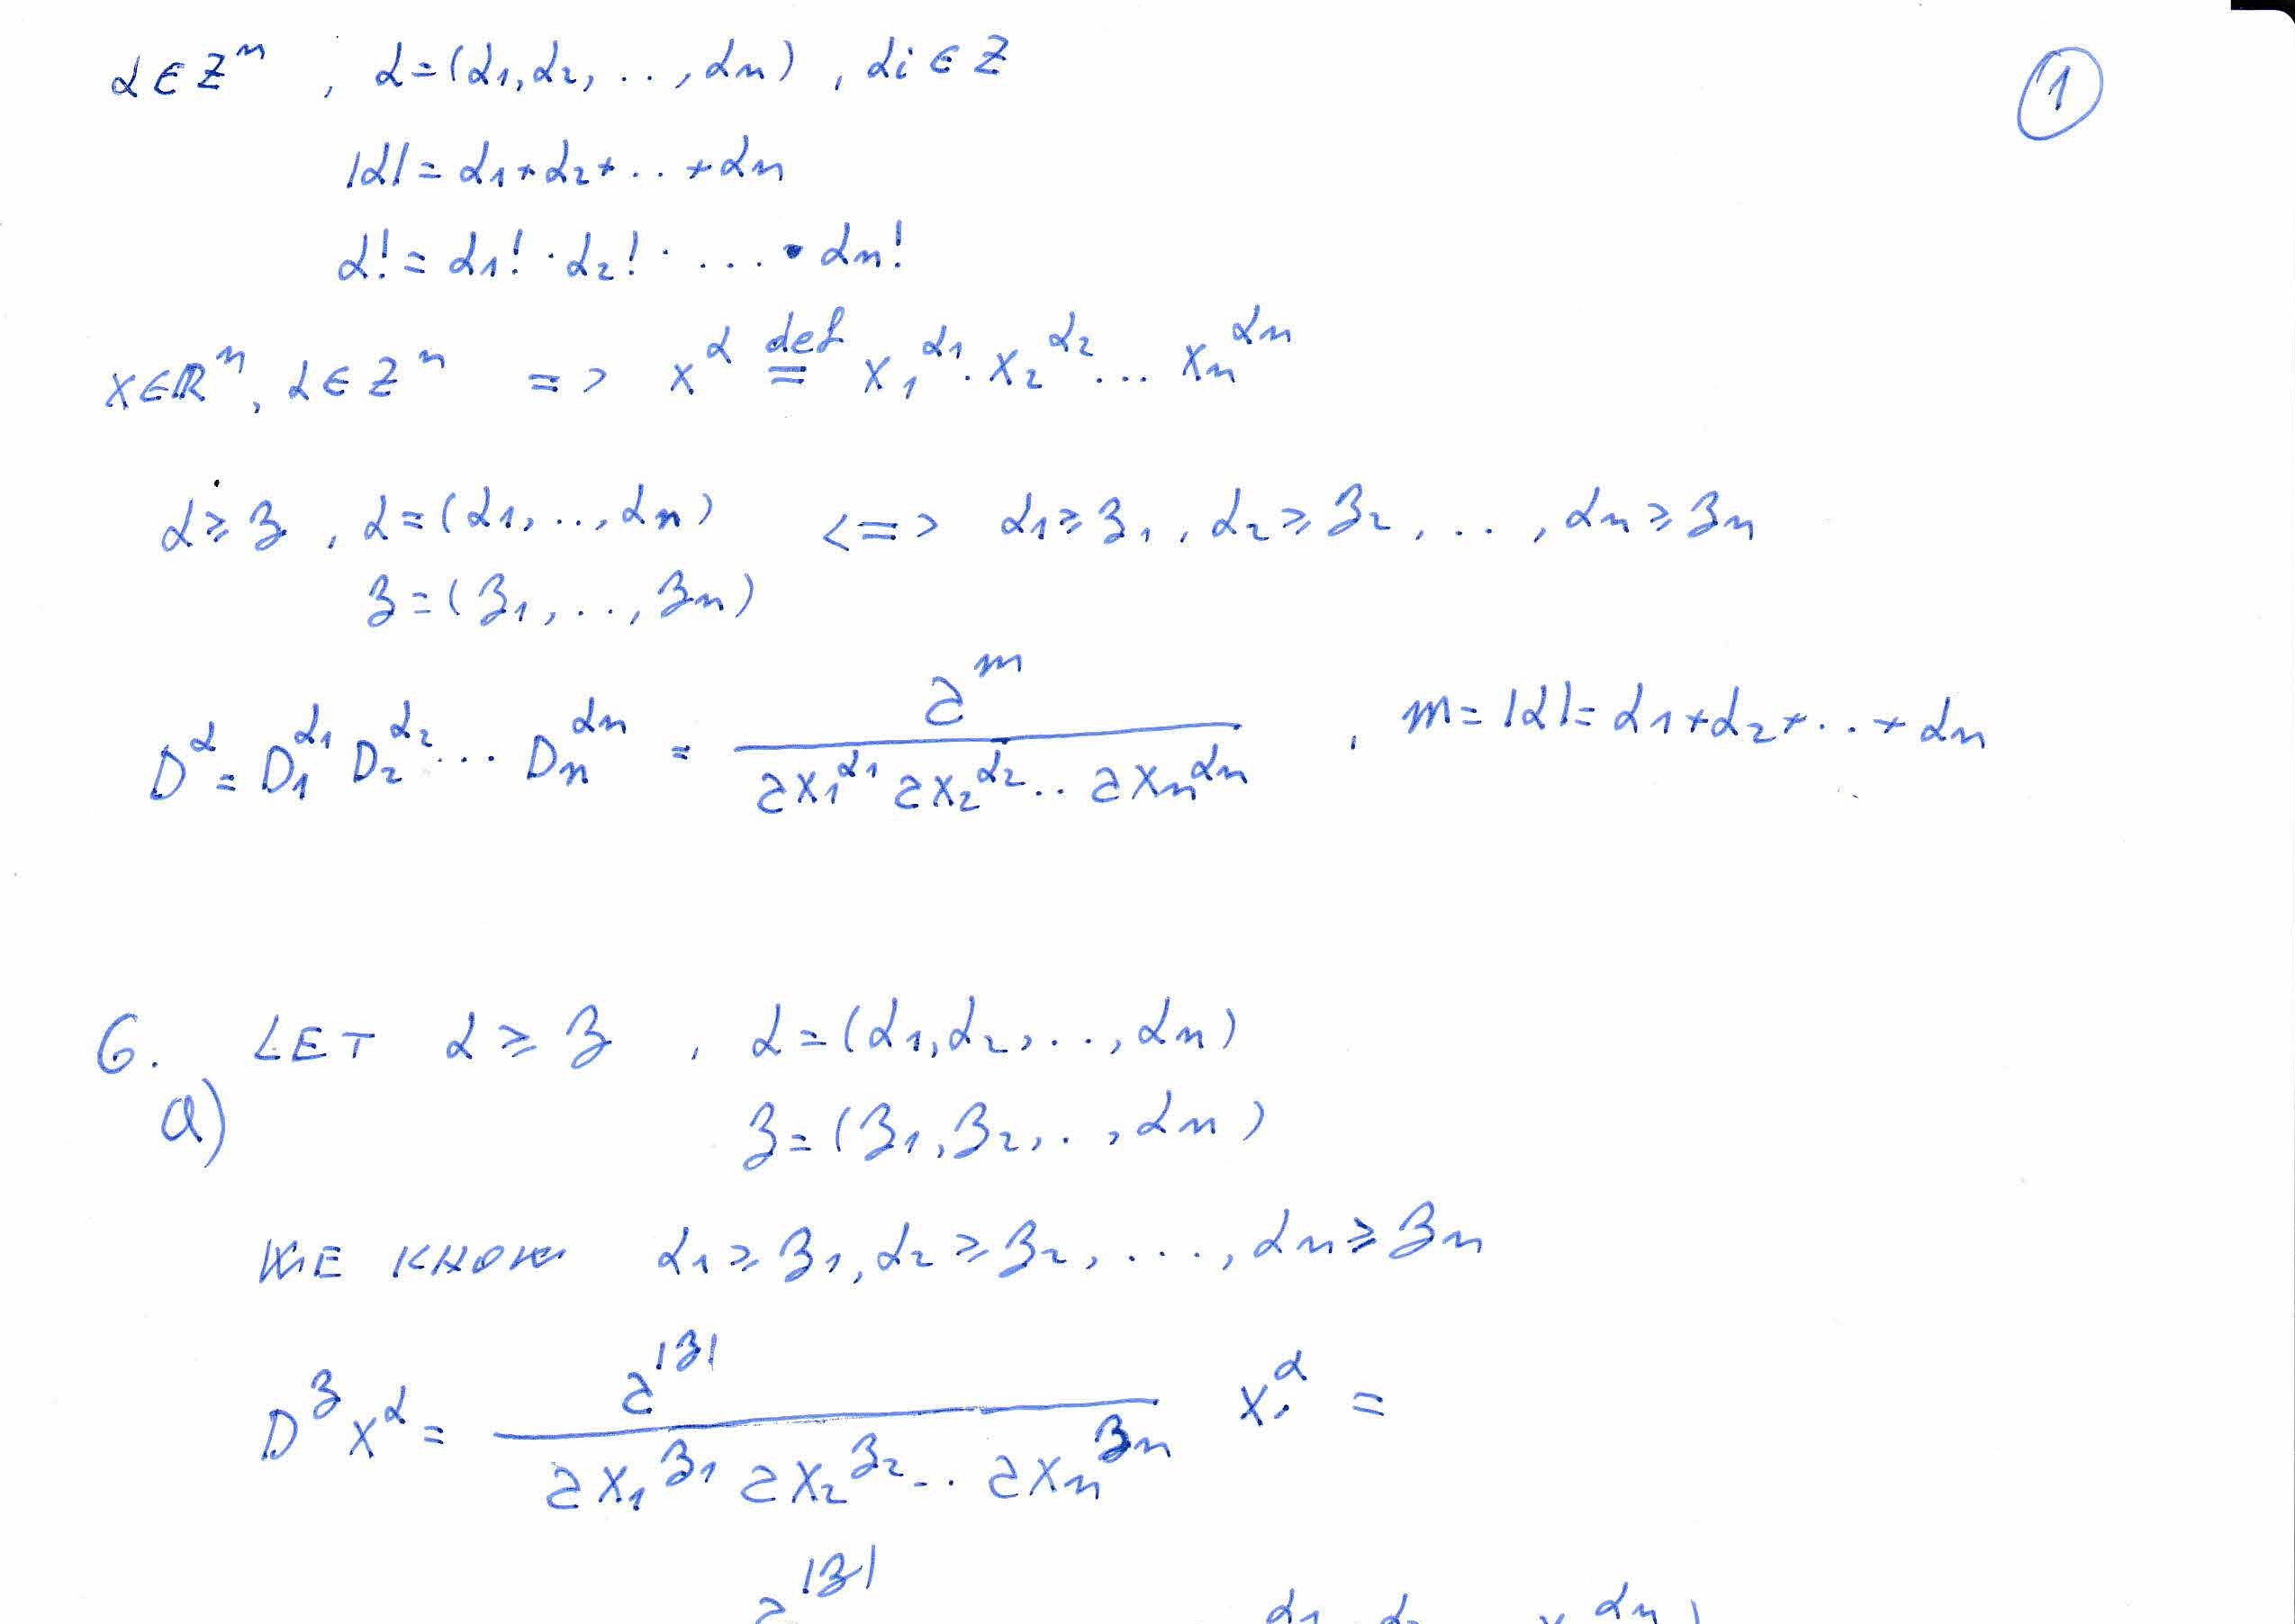 α∈Zⁿ, α=(α1,α2,..,αn), αi∈Z
①
|α|=α1+α2+..+αn
α!=α1!·α2!·....•αn!
x∈ℝⁿ, α∈Zⁿ => x^α def= x1^α1·x2^α2... xn^αn
α≥3, α=(α1,..,αn) <=> α1≥31, α2≥32, .., αn≥3n
3=(31,..,3n)
D^α=D1^α1 D2^α2... Dn^αn = ∂^m / ∂x1^α1 ∂x2^α2.. ∂xn^αn, m=|α|=α1+α2+..+αn
6. LET α≥3, α=(α1,α2,..,αn)
a) 3=(31,32,..,αn)
WE KNOW α1≥31, α2≥32, ..., αn≥3n
D^3 x^α = ∂^|3| / ∂x1^31 ∂x2^32... ∂xn^3n x^α =
∂^|3| α1 α2 x αn)